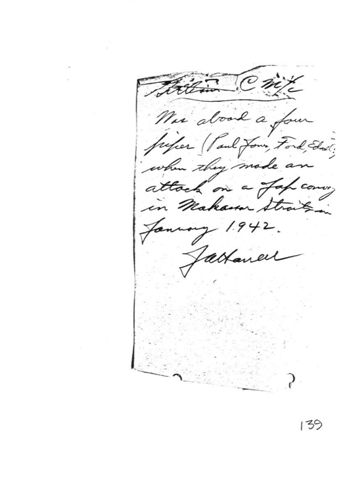 C
Was aboard a four
piper (Paul Jones, Ford,
when they made an
attack on a Jap convoy
in Makassar Straits in
January 1942.
139